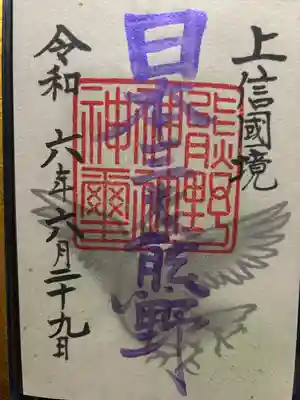 上信國境
日本三熊野
熊野
神社
神璽
令和 六年 六月二十九日